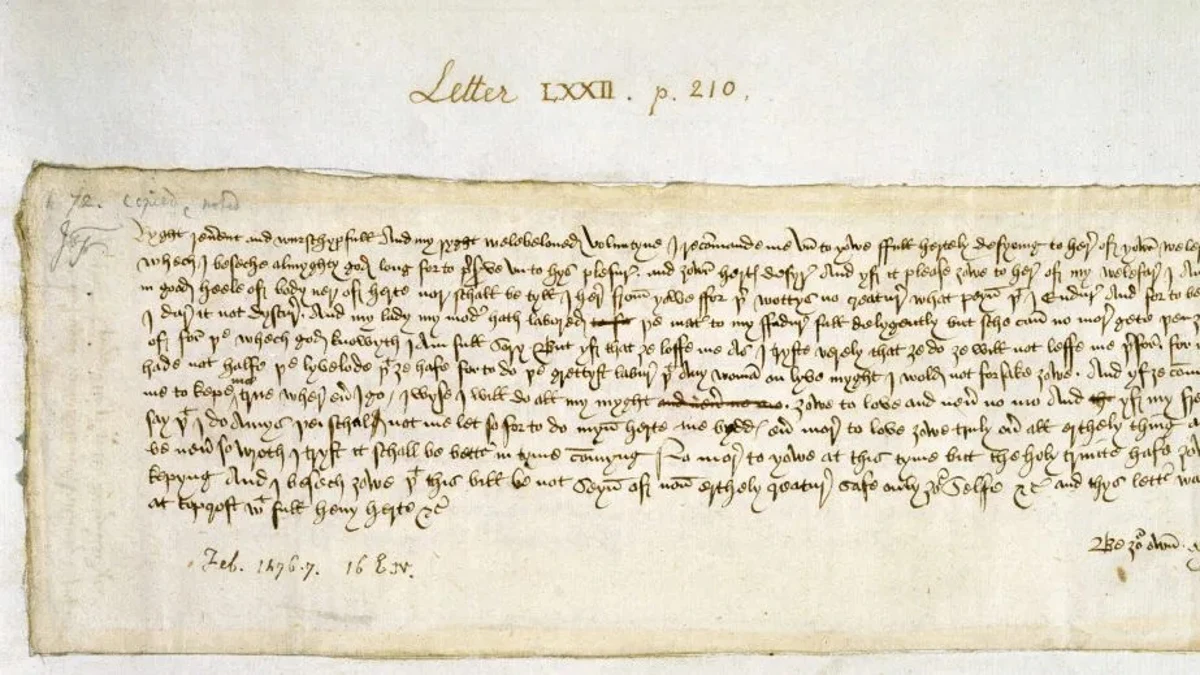 Letter LXXII. p. 210.
n 72. copied, noted
Ryght reuerent and wurschypfull And my ryght welebeloued Voluntyne I recomande me vn to yowe ffull hertely desyring to here of yowr wele
whech I beseche almyghty god long for to preserve vn to hys plesur. and zowr hertys desyre And yf it please zowe to here of my welefar I Am
in good heele of body ner of herte nor schall be tyll I here from yowe ffor þer wottys no creature what peyn þt I Endure And for to be
I dare it not dyscure. And my lady my moder hath labored þe mater to my ffadure full delygently but sche can no more gete þen
of for þe whech god knowyth I Am full sory But yf that ze loffe me As I tryste verely that ze do ze will not leffe me þerfor. for
hade not halfe þe lyvelode þt ze hafe for to do þe grettyst labur þt Any woman on lyve myght I wold not forsake zowe. And yf ze com
me to kepe me true wher euer I go, I wyse I will do all my myght zowe to love and neuer no mo And yf my
say þt I do Amys þei schall not me let so for to do myn herte me bydd, euer more to love zowe truly ouer all erthely thing
be neuer so wroth I tryst it schall be better in tyme comyng No more to yowe at this tyme but the holy trinite hafe yow
kepyng And I besech zowe þt this bill be not seyn of non erthely creature safe only zour selfe &c and thys letter wa
at topcroft wt full heuy herte &c
Be zour own
Feb. 1476.7. 16 E. IV.